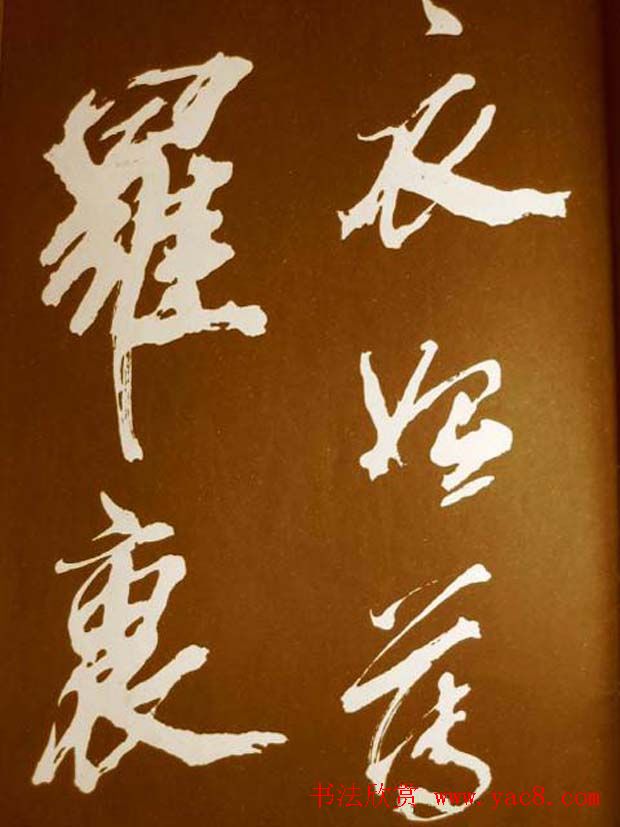 衣始
羅裏
书法欣赏 www.yac8.com